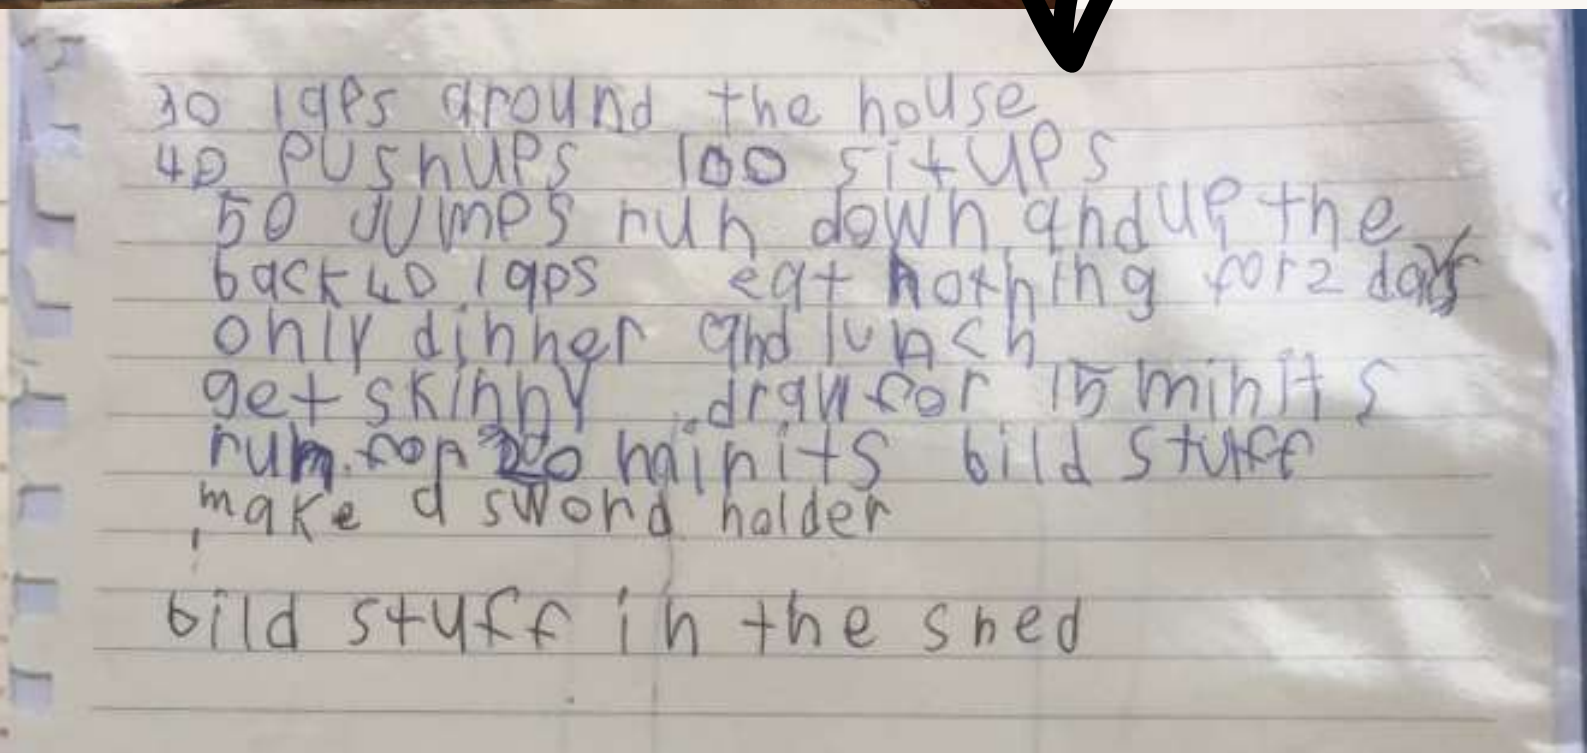 30 laps around the house
40 pushups 100 situps
50 Jumps run down and up the
back 40 laps eat nothing for 2 days
only dinner and lunch
get skinny draw for 15 minits
run for 20 minits bild stuff
make a sword holder
bild stuff in the shed